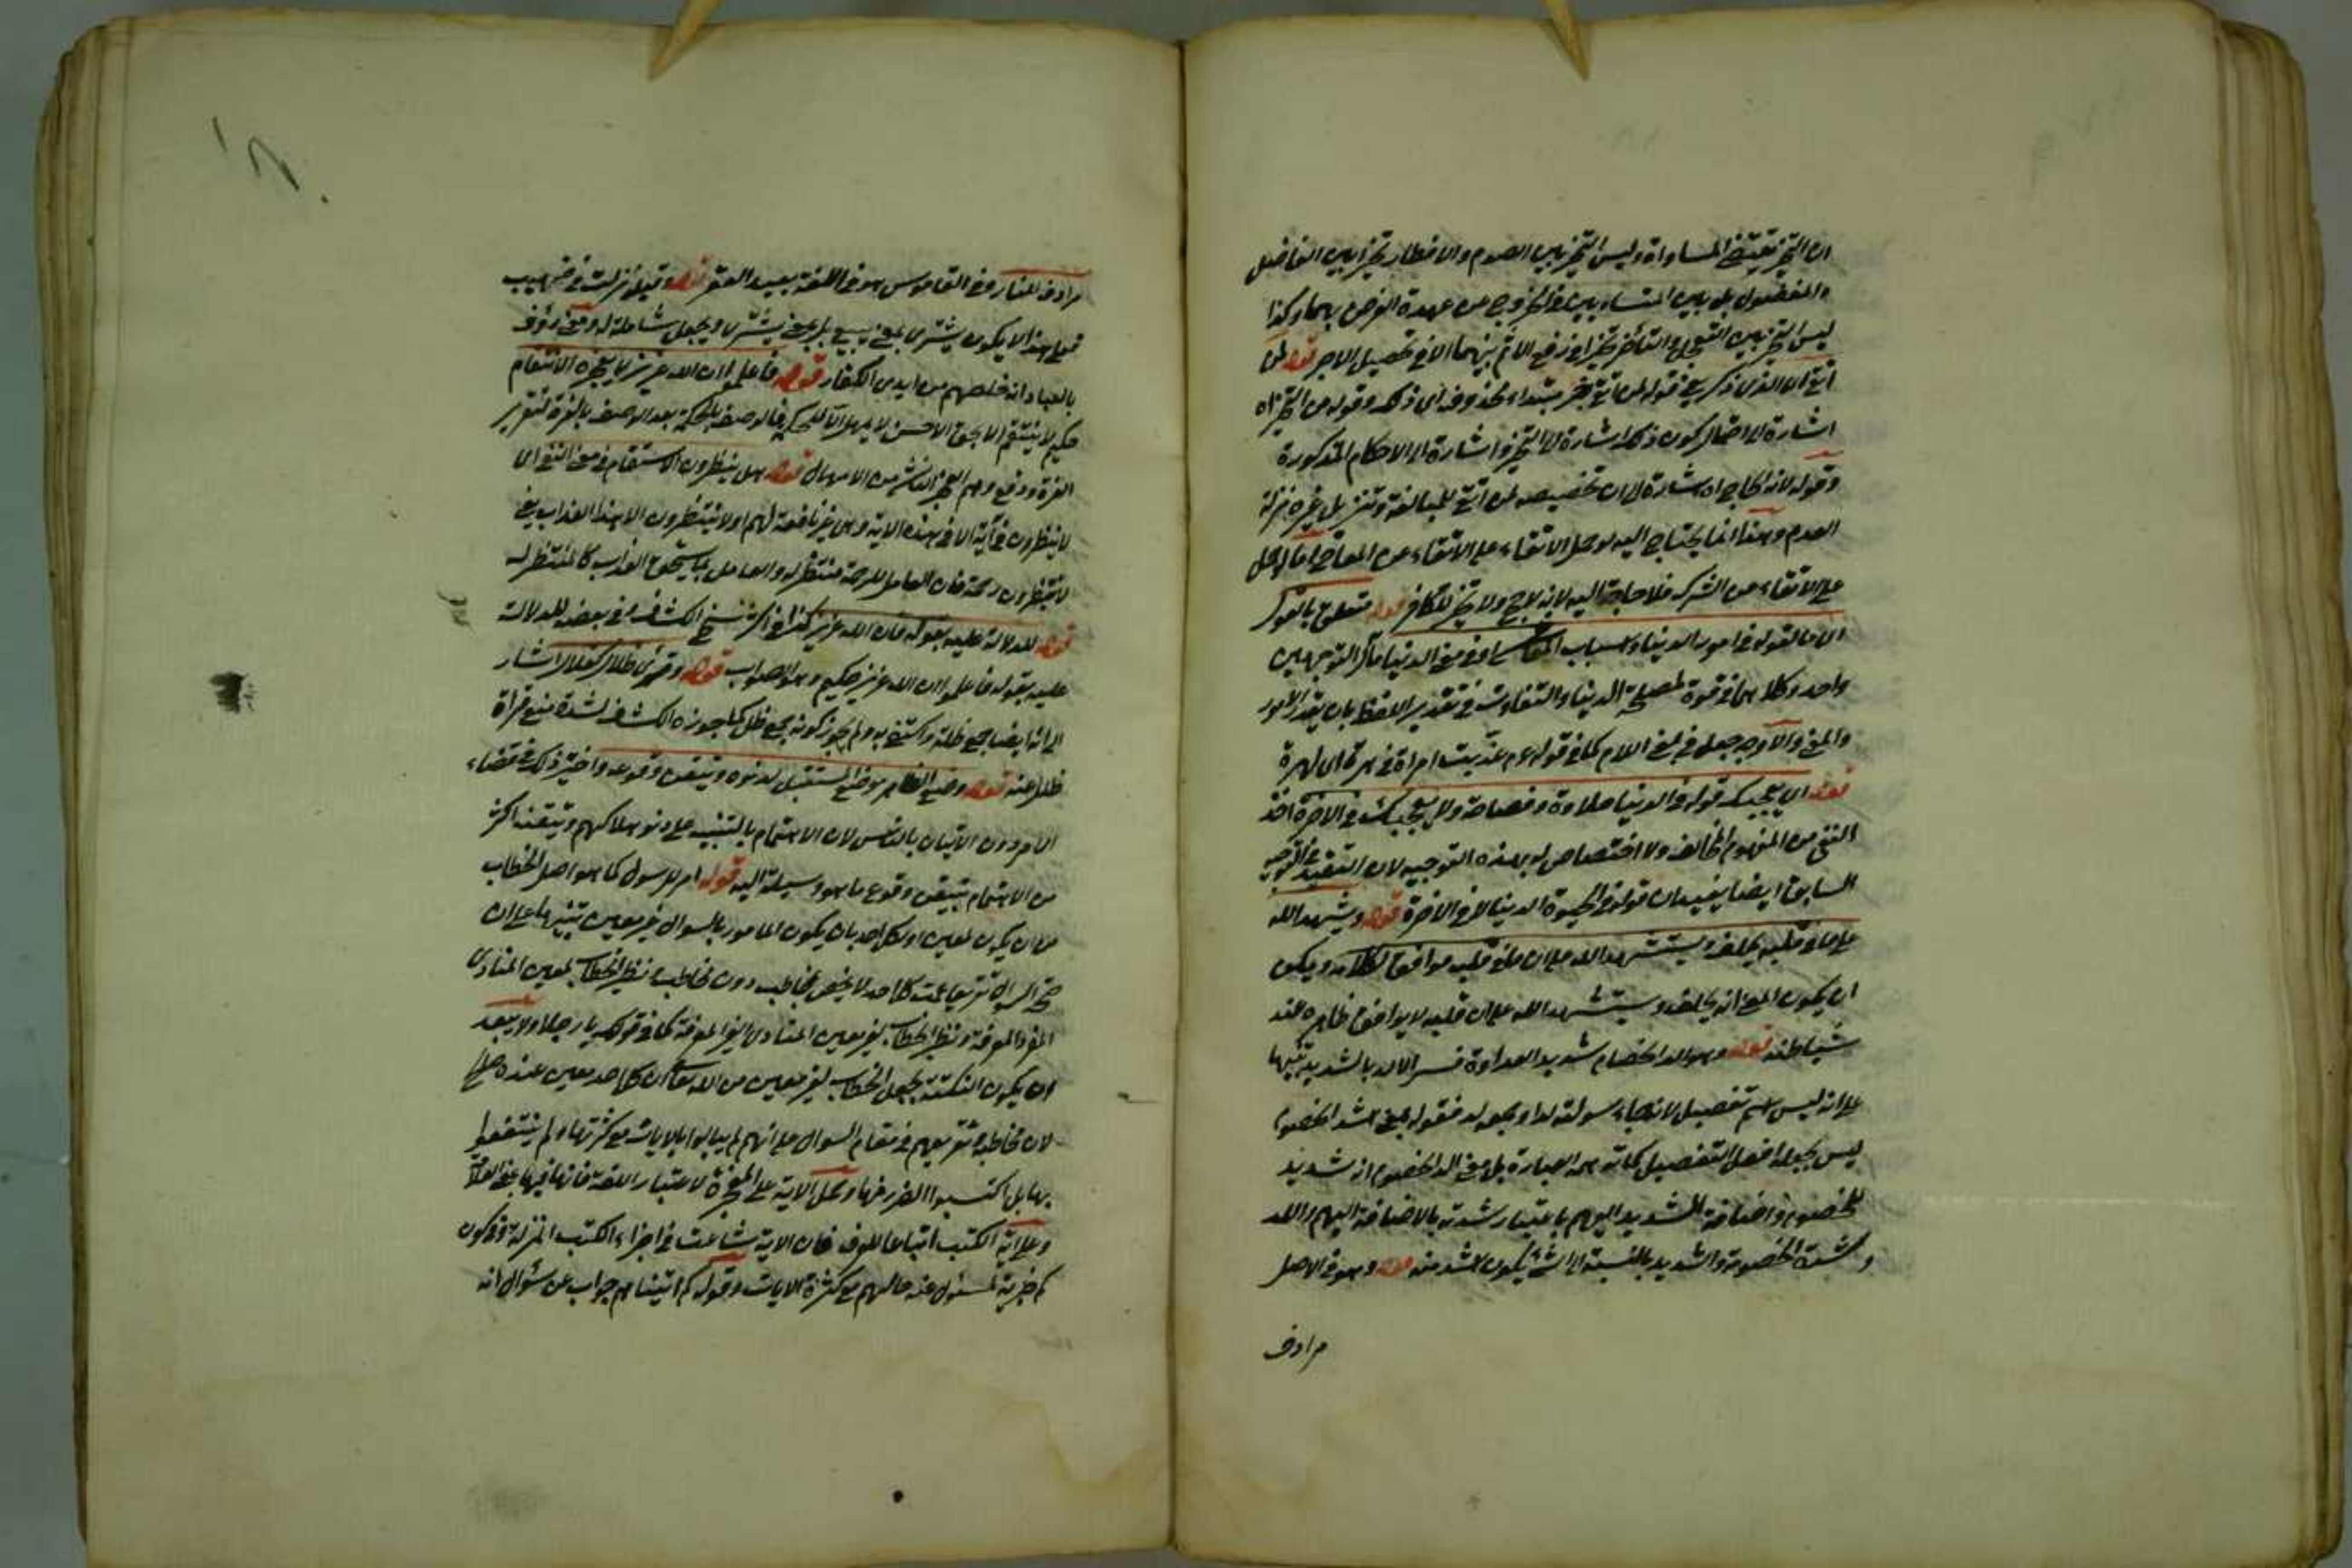 ان التخيير يقتضي المساواة وليس التخيير بين الصوم والافطار تخييرا بين الفاضل
والمفضول بل بين المتساويين في الخروج عن عهدة الفرض بهما وكذا
ليس التخيير بين التعجيل والتأخر تخييرا في رفع الاثم بينهما الا في تحصيل الاجر قوله لمن
اتقى اي الذي ذكر يعني قوله لمن اتقى خبر مبتداء محذوف اي ذلك وقوله من التخيير اه
اشارة الى احتمال كون ذلك اشارة الى التخيير واشارة الى الاحكام المذكورة
وقوله لانه الحاج اه اشارة الى ان تخصيصه لمن اتقى للمبالغة وتنزيل غيره منزلة
العدم وهذا انما يحتاج اليه لو حمل الاتقاء على الاتقاء عن المعاصي اما لو حمل
على الاتقاء عن الشرك فلا حاجة اليه لانه لا حج ولا تخيير للكافر قوله متعلق بالقول
اي ما يقوله في امور الدنيا واسباب المعاش او في معنى الدنيا مآل التوجيهين
واحد وكلاهما في قوة لمصلحة الدنيا والتفاوت في تقدير اللفظ بان يقدر الامور
والمعنى والاوجه جعل في بمعنى اللام كما في قوله عم عذبت امراة في هرة اي لهرة
قوله اي يعجبك قوله في الدنيا حلاوة وفصاحة ولا يعجبك في الاخرة اخذ
النفي من المفهوم المخالف ولا اختصاص له بهذه التوجيه لان التقييد على التوجيه
السابق ايضا يفيد ان قوله في الحيوة الدنيا لا في الاخرة قوله ويشهد الله
على ما في قلبه يحلف ويستشهد الله على ان ما في قلبه موافق لكلامه ويمكن
ان يكون المعنى انه يحلف ويستشهد الله على ان قلبه لا يوافق ظاهره عند
شياطنه قوله وهو الد الخصام شديد العداوة فسر الالد بالشديد تنبيها
على انه ليس اسم تفضيل لانه جاء مونثه لداء وجمعه لد فقوله بمعنى اشد الخصوم
ليس بجعله افعل التفضيل كما توهمه العبارة بل معنى الد الخصوم انه شديد
الخصوم واضافة الشديد اليهم باعتبار شدته بالاضافة اليهم واللدد
شدة الخصومة والشديد بالنسبة الى الشئ يكون اشد منه قوله وهو في الاصل
مرادف
مرادف للنار وفي القاموس هو في اللغة بعيد القعر قوله وقيل نزلت في صهيب
فعلى هذا لا يكون يشترى بمعنى يبيع بل بمعنى يشترى ويجعل شاملة له ومعنى رؤف
بالعباد انه خلصهم من ايدى الكفار قوله فاعلموا ان الله عزيز لا يعجزه الانتقام
حكيم لا ينتقم الا بحق الاحسن لا يمهل الا لحكمة فالوصف بالحكمة بعد الوصف بالعزة لتقرير
العزة ودفع وهم العجز الناشئ من الامهال قوله هل ينظرون استفهام في معنى النفي اي
لا ينظرون في آية الا في هذه الاية وهي غير نافعة لهم او لا ينتظرون الا هذا العذاب يعني
لا ينتظرون رحمة فان العامل للرحمة منتظر له والعامل بما يستحق العذاب كالمنتظر له
قوله للدلالة عليه بقوله فان الله عزيز كذا في اكثر نسخ الكشاف وفي بعضه للدلالة
عليه بقوله فاعلموا ان الله عزيز حكيم وهو الصواب قوله وقرئ ظلال كقلال اشار
الى انه ايضا جمع ظلة واكتفى به ولم يجوز كونه جمع ظل كما جوزه الكشاف لشدة منع قراة
ظلل عنه قوله وضع الظاهر موضع المستقبل لدنوه وتيقن وقوعه واختير ذلك في قضاء
الامر دون الاتيان بالباس لان الاهتمام بالتنبيه على دنو هلاكهم وتيقنه اكثر
من الاهتمام بتيقن وقوع ما هو وسيلة اليه قوله امر للرسول كما هو اصل الخطاب
من ان يكون لمعين او لكل احد بان يكون المامور بالسوال غير معين تنبيها على ان
صحة السوال تقريعا عمت كل احد لا يختص بمخاطب دون مخاطب نظير الخطاب لمعين المنادى
المفرد المعرفة ونظير الخطاب لغير معين المنادى الغير المعرفة كما في قولك يا رجلا ولا يبعد
ان يكون النكتة بجعل الخطاب لغير معين من الله تعالى ان كل احد معين عنده صالح
لان يخاطب وتقريعهم في مقام السوال على انهم لم يبالوا بالايات مع كثرتها ولم ينتفعوا
بها بل اكتسبوا الضرر منها وحمل الاية على المعجزة لاعتبار اللغة فانها فيها بمعنى العلامة
وعلى آية الكتب اتباعا للعرف فان الاية شاعت في اجزاء الكتب المنزلة وفي كون
كم خبرية المسئول عنه حالهم مع كثرة الايات وقوله كم اتيناهم جواب عن سؤال انه